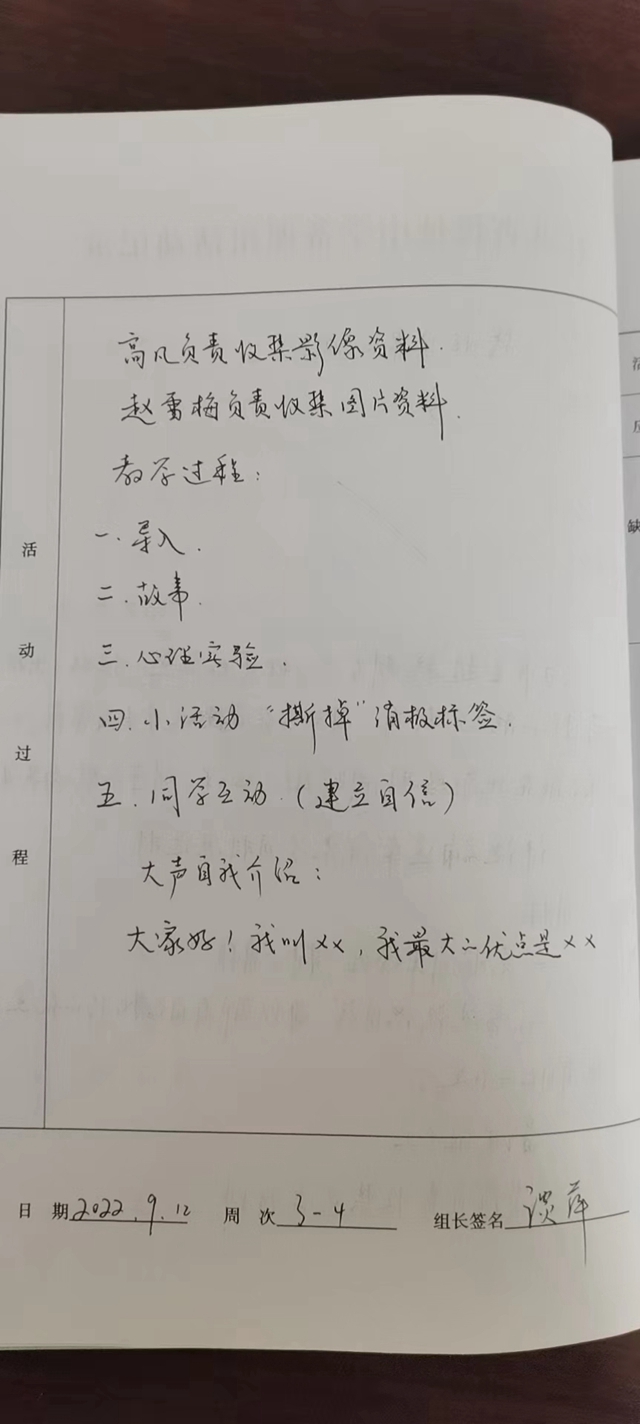 高凡负责收集影像资料.
赵雪梅负责收集图片资料.
教学过程:
一.导入.
二.故事.
三.心理实验.
四.小活动“撕掉”消极标签.
五.同学互动.(建立自信)
大声自我介绍:
大家好!我叫××,我最大的优点是××
活动过程
日 期 2022.9.12 周 次 3-4 组长签名 谈萍
活
缺